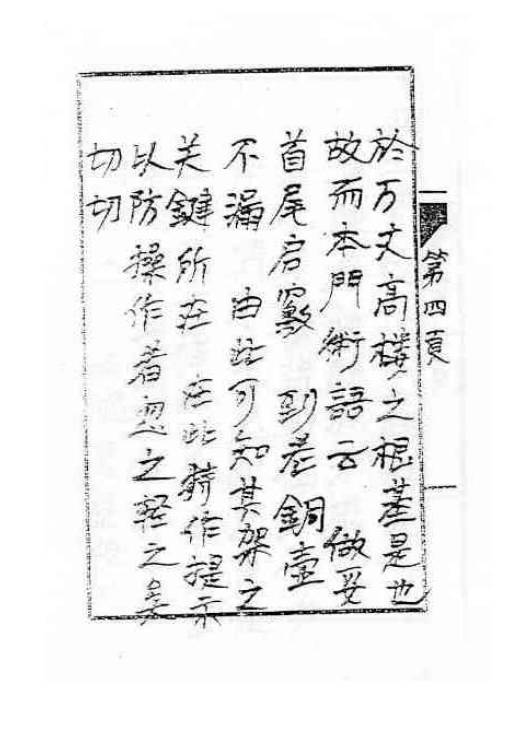 第四頁
於万丈高楼之根基是也
故而本門術語云 做妥
首尾启窽 到老銅壺
不漏 由此可知其架之
关鍵所在 在此特作提示
以防操作者忽之轻之
切切